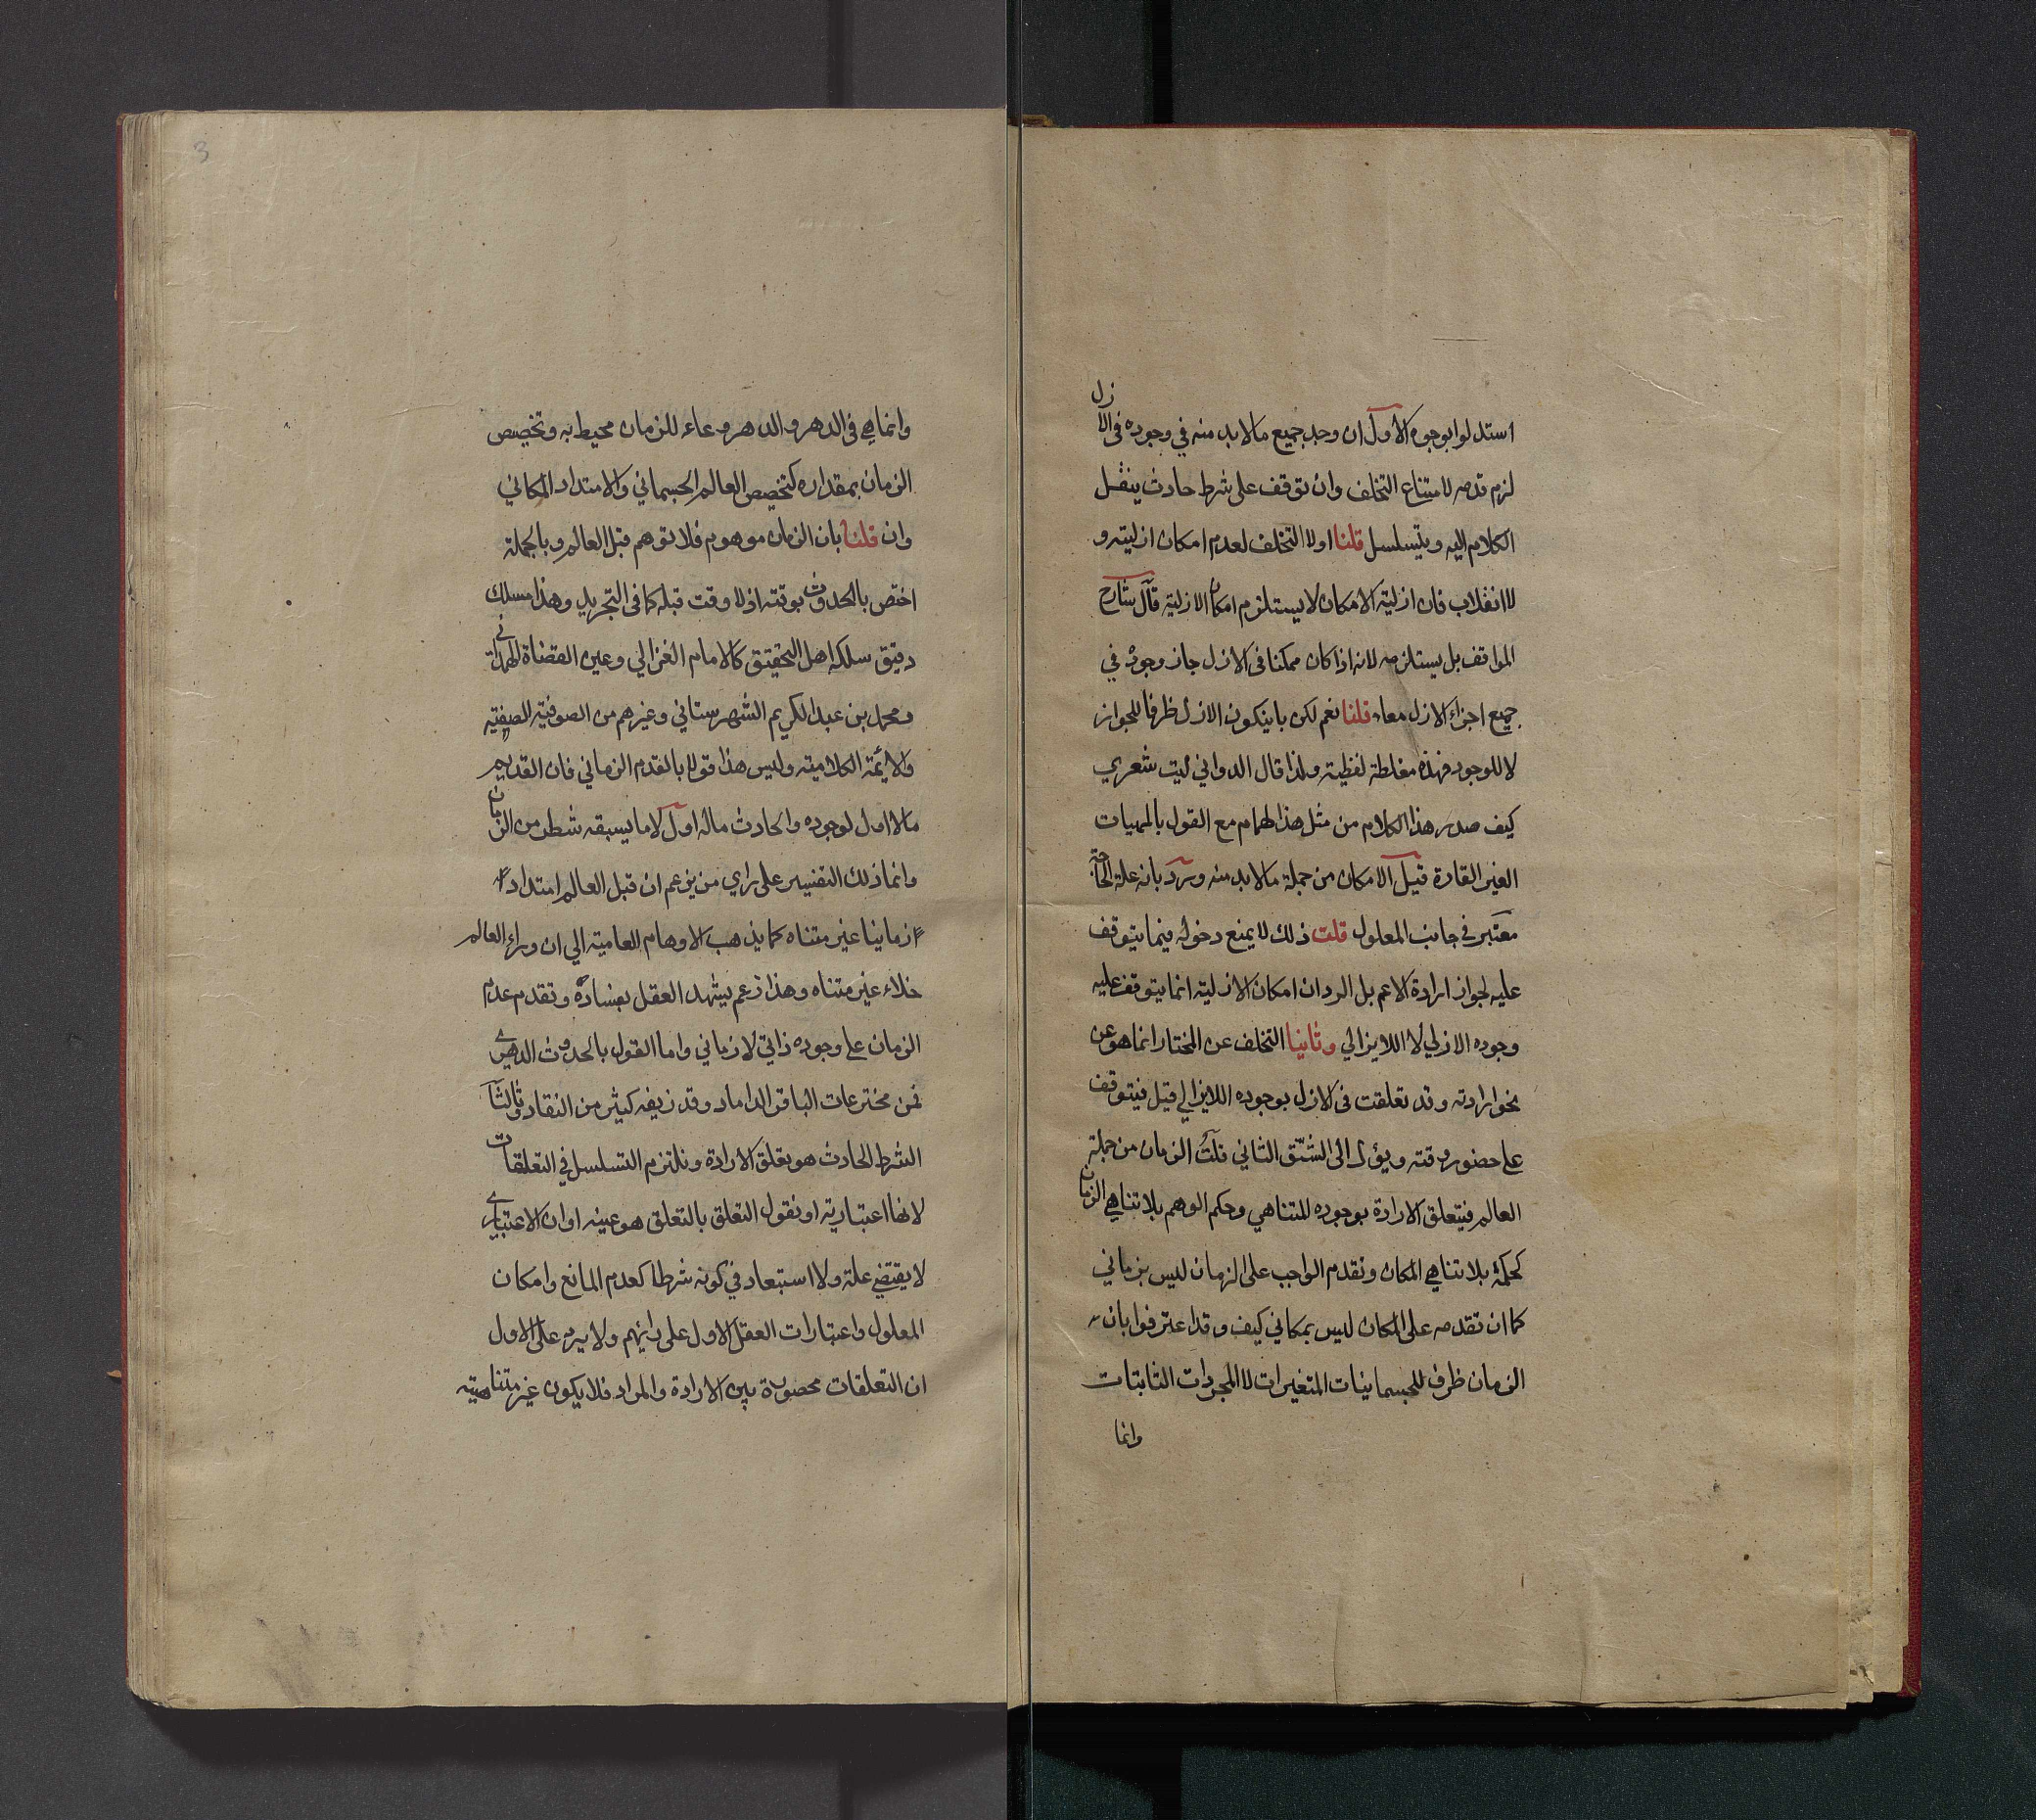 استدلوا بوجوه الاول ان وجد جميع مالابد منه في وجوده في الازل
لزم قدمه لامتناع التخلف وان توقف على شرط حادث ينقل
الكلام اليه ويتسلسل قلنا اولا التخلف لعدم امكان ازليته و
لا انقلاب فان ازلية الامكان لا يستلزم امكان الازلية قال شارح
المواقف بل يستلزمه لانه اذا كان ممكنا في الازل جاز وجوده في
جميع اجزاء الازل معا قلنا نعم لكن بان يكون الازل ظرفا للجواز
لا للوجود فهذه مغلطة لفظية ولذا قال الدواني ليت شعري
كيف صدر هذا الكلام من مثل هذا الهمام مع القول بالمهيات
الغير القارة قيل الامكان من جملة مالابد منه ورد بانه علة الحاجة
معتبر في جانب المعلول قلت ذلك لا يمنع دخوله فيما يتوقف
عليه لجواز ارادة الاعم بل الرد ان امكان الازلية انما يتوقف عليه
وجوده الازلي لا اللايزالي وثانيا التخلف عن المختار انما هو عن
نحو ارادته وقد تعلقت في الازل بوجوده اللايزالي قيل فيتوقف
على حضور وقته ويؤل الى الشق الثاني قلت الزمان من جملة
العالم فيتعلق الارادة بوجوده المتناهي وحكم الوهم بلا تناهي الزمان
كحكمه بلا تناهي المكان وتقدم الواجب على الزمان ليس بزماني
كما ان تقدمه على المكان ليس بمكاني كيف وقد اعترفوا بان
الزمان ظرف للجسمانيات المتغيرات لا المجردات الثابتات
وانما
3
وانما هي في الدهر والدهر وعاء للزمان محيط به وتخصيص
الزمان بمقداره كتخصيص العالم الجسماني والامتداد المكاني
وان قلنا بان الزمان موهوم فلا توهم قبل العالم وبالجملة
اختص بالحدوث بوقته اذ لا وقت قبله كما في التجريد وهذا مسلك
دقيق سلكه اهل التحقيق كالامام الغزالي وعين القضاة الهمداني
ومحمد بن عبد الكريم الشهرستاني وغيرهم من الصوفية الصفية
والائمة الكلامية وليس هذا قولا بالقدم الزماني فان القديم
مالا اول لوجوده والحادث ماله اول لا ما يسبقه شطر من الزمان
وانما ذلك التفسير على راي من يزعم ان قبل العالم امتدادا
زمانيا غير متناه كما يذهب الاوهام العامية الي ان وراء العالم
خلاء غير متناه وهذا زعم يشهد العقل بفساده وتقدم عدم
الزمان على وجوده ذاتي لا زماني واما القول بالحدوث الدهري
فمن مخترعات الباقر الداماد وقد زيفه كثير من النقاد وثالثا
الشرط الحادث هو تعلق الارادة ونلتزم التسلسل في التعلقات
لانها اعتبارية او نقول التعلق بالتعلق هو عينه او ان الاعتباري
لا يقتضي علة ولا استبعاد في كونه شرطا كعدم المانع وامكان
المعلول واعتبارات العقل الاول على رايهم ولا يرد على الاول
ان التعلقات محصورة بين الارادة والمراد فلا يكون غير متناهية